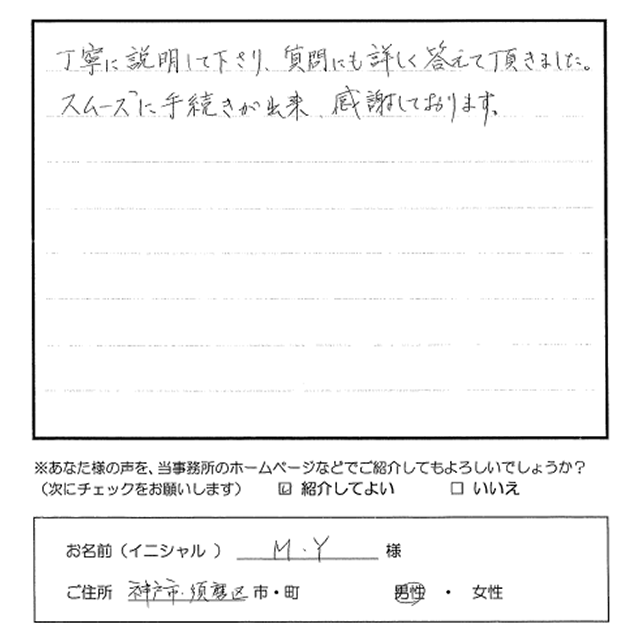 丁寧に説明して下さり、質問にも詳しく答えて頂きました。
スムーズに手続きが出来、感謝しております。
※あなた様の声を、当事務所のホームページなどでご紹介してもよろしいでしょうか？
（次にチェックをお願いします） ☑ 紹介してよい □ いいえ
お名前（イニシャル ） M.Y 様
ご住所 神戸市・須磨区 市・町 男性 ・ 女性